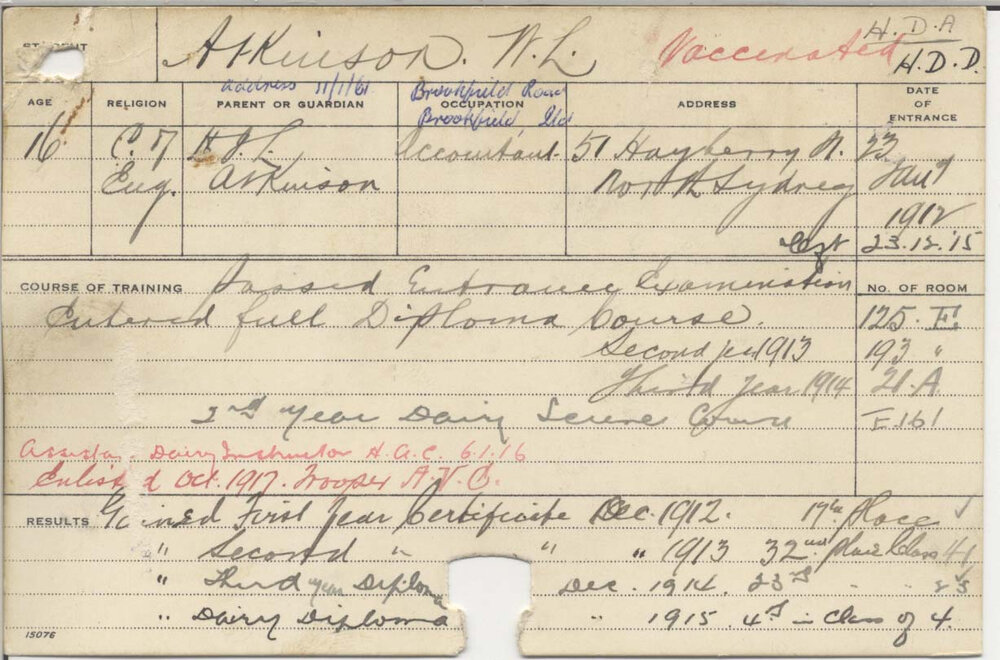 H.D.A
STUDENT Atkinson. W.L. Vaccinated H.D.D.
address 11/1/61 Brookfield Road
Brookfield, Qld
AGE RELIGION PARENT OR GUARDIAN OCCUPATION ADDRESS DATE OF ENTRANCE
16 C. of Accountant 51 Hayberry St. 23
Eng. Atkinson North Sydney Jany
1912
Left 23.12.15
COURSE OF TRAINING Passed Entrance Examination No. OF ROOM
Entered full Diploma Course. 125. E.
Second year 1913 193 "
Third year 1914 21. A
2nd Year Dairy Science Course E.161
Assistant Dairy Instructor H.A.C. 6.1.16
Enlisted Oct. 1917. Trooper
RESULTS Gained First Year Certificate Dec. 1912. 17th Place
" Second " " " 1913 32nd place Class 41
" Third year Diploma Dec. 1914. 23rd " "
" Dairy Diploma " 1915. 4th in Class of 4.
15076